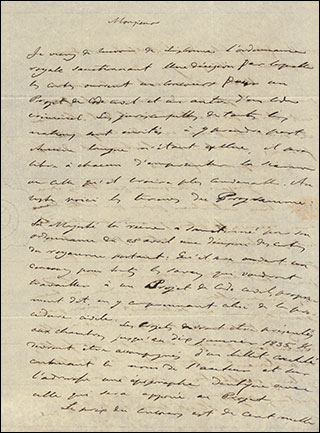 Monsieur
Je viens de recevoir de Lisbonne l'ordonnance
royale sanctionnant une décision par laquelle
les cortes ouvrent un concours pour un
Projet de Code civil et un autre d'un code
criminel. Les jurisconsultes de toutes les
nations sont invités à y prendre part
chacun
libre à chacun d'
ou celle qu'il trouvera plus convenable. Au
reste voici les termes du Programme:
Sa Majesté la reine a sanctionné par son
ordonnance du 25 avril une décision des cortes
du royaume portant: qu'il sera ouvert un
concours pour tous les savans qui voudront
travailler à un Projet de Code civil propre-
ment dit, en y comprenant celui de la pro-
cédure civile. Les Projets devront être présentés
aux chambres jusqu'au dix janvier 1835. Ils
devront être accompagnés d'un billet cacheté
contenant le nom de l'auteur et sur
l'adresse une épigraphe
celle qui sera apposée au Projet.
Le prix du concours est de